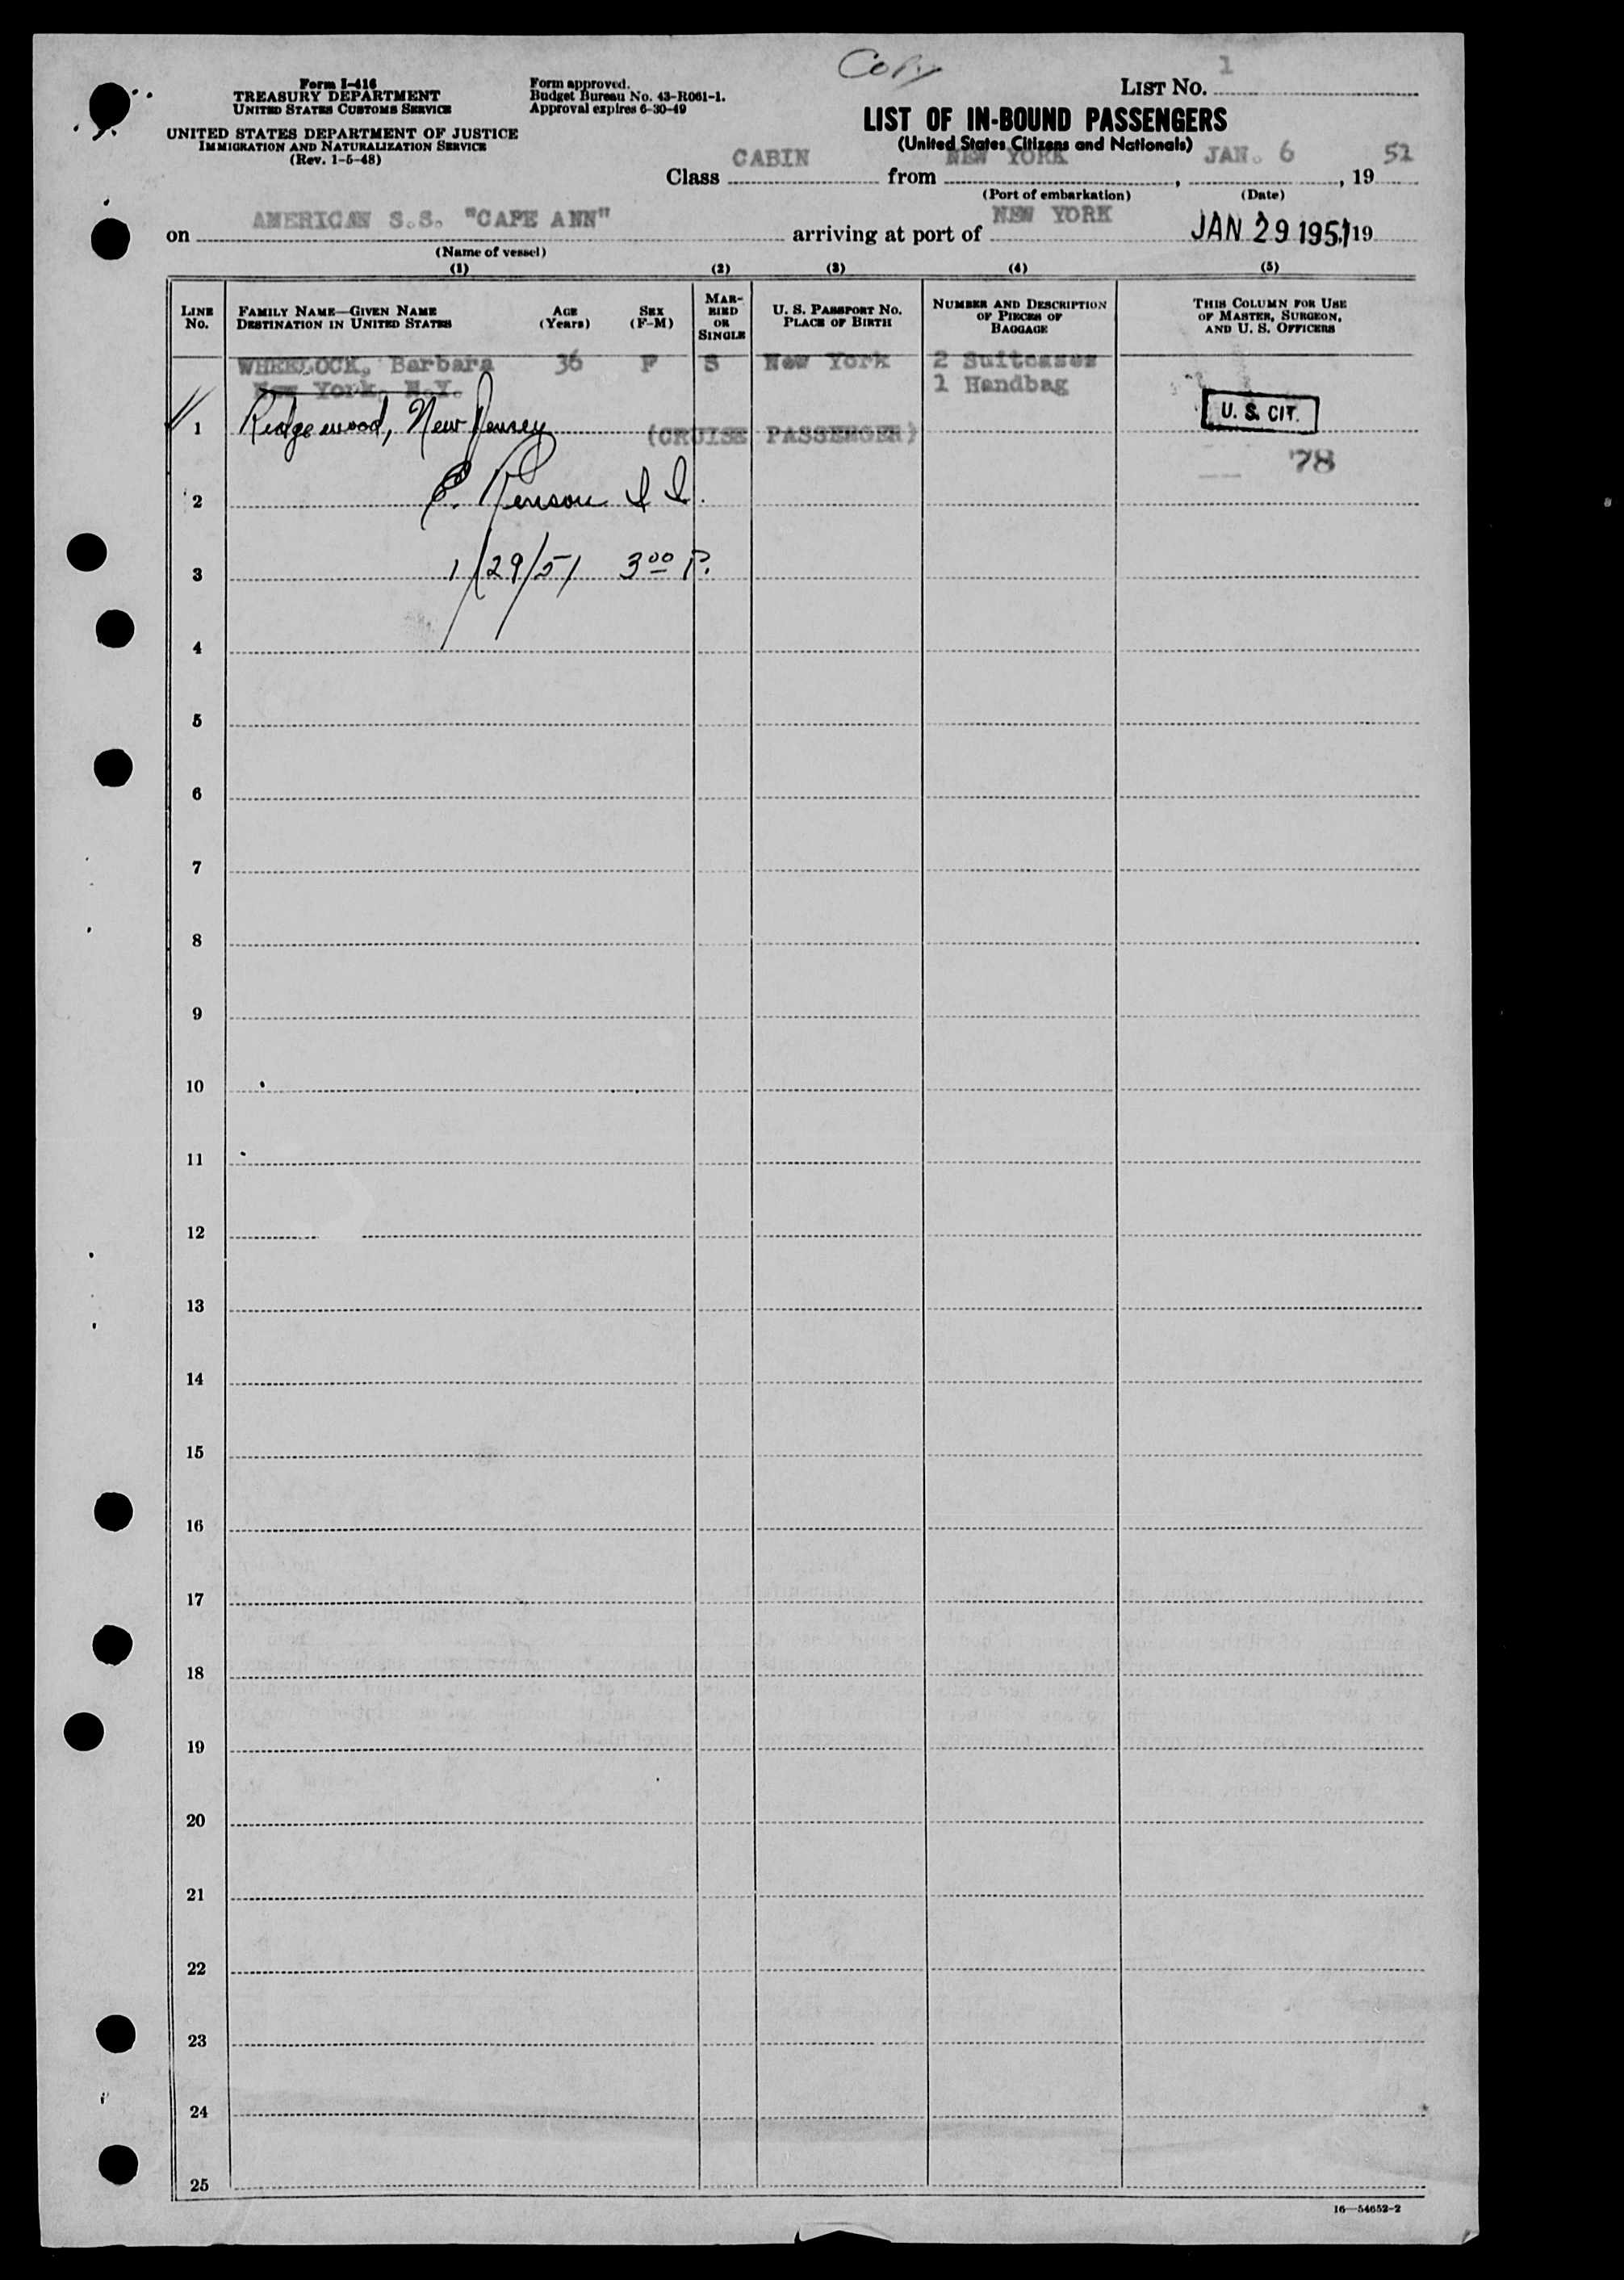 Copy
Form I-416
TREASURY DEPARTMENT
UNITED STATES CUSTOMS SERVICE
UNITED STATES DEPARTMENT OF JUSTICE
IMMIGRATION AND NATURALIZATION SERVICE
(Rev. 1-5-48)
Form approved.
Budget Bureau No. 43-R061-1.
Approval expires 6-30-49
LIST No. 1
LIST OF IN-BOUND PASSENGERS
(United States Citizens and Nationals)
Class CABIN from NEW YORK, JAN. 6, 19 51
(Port of embarkation) (Date)
on AMERICAN S.S. "CAPE ANN" arriving at port of NEW YORK JAN 29 1951, 19
(Name of vessel)
(1) (2) (3) (4) (5)
LINE No.
FAMILY NAME—GIVEN NAME
DESTINATION IN UNITED STATES
AGE (Years)
SEX (F-M)
MARRIED OR SINGLE
U. S. PASSPORT No.
PLACE OF BIRTH
NUMBER AND DESCRIPTION OF PIECES OF BAGGAGE
THIS COLUMN FOR USE OF MASTER, SURGEON, AND U. S. OFFICERS
WHEELOCK, Barbara 36 F S New York 2 Suitcases
New York, N.Y. 1 Handbag
1 Ridgewood, New Jersey (CRUISE PASSENGER) U. S. CIT.
78
2
3 1/29/51 3 00 P.
4
5
6
7
8
9
10
11
12
13
14
15
16
17
18
19
20
21
22
23
24
25
16—54652-2